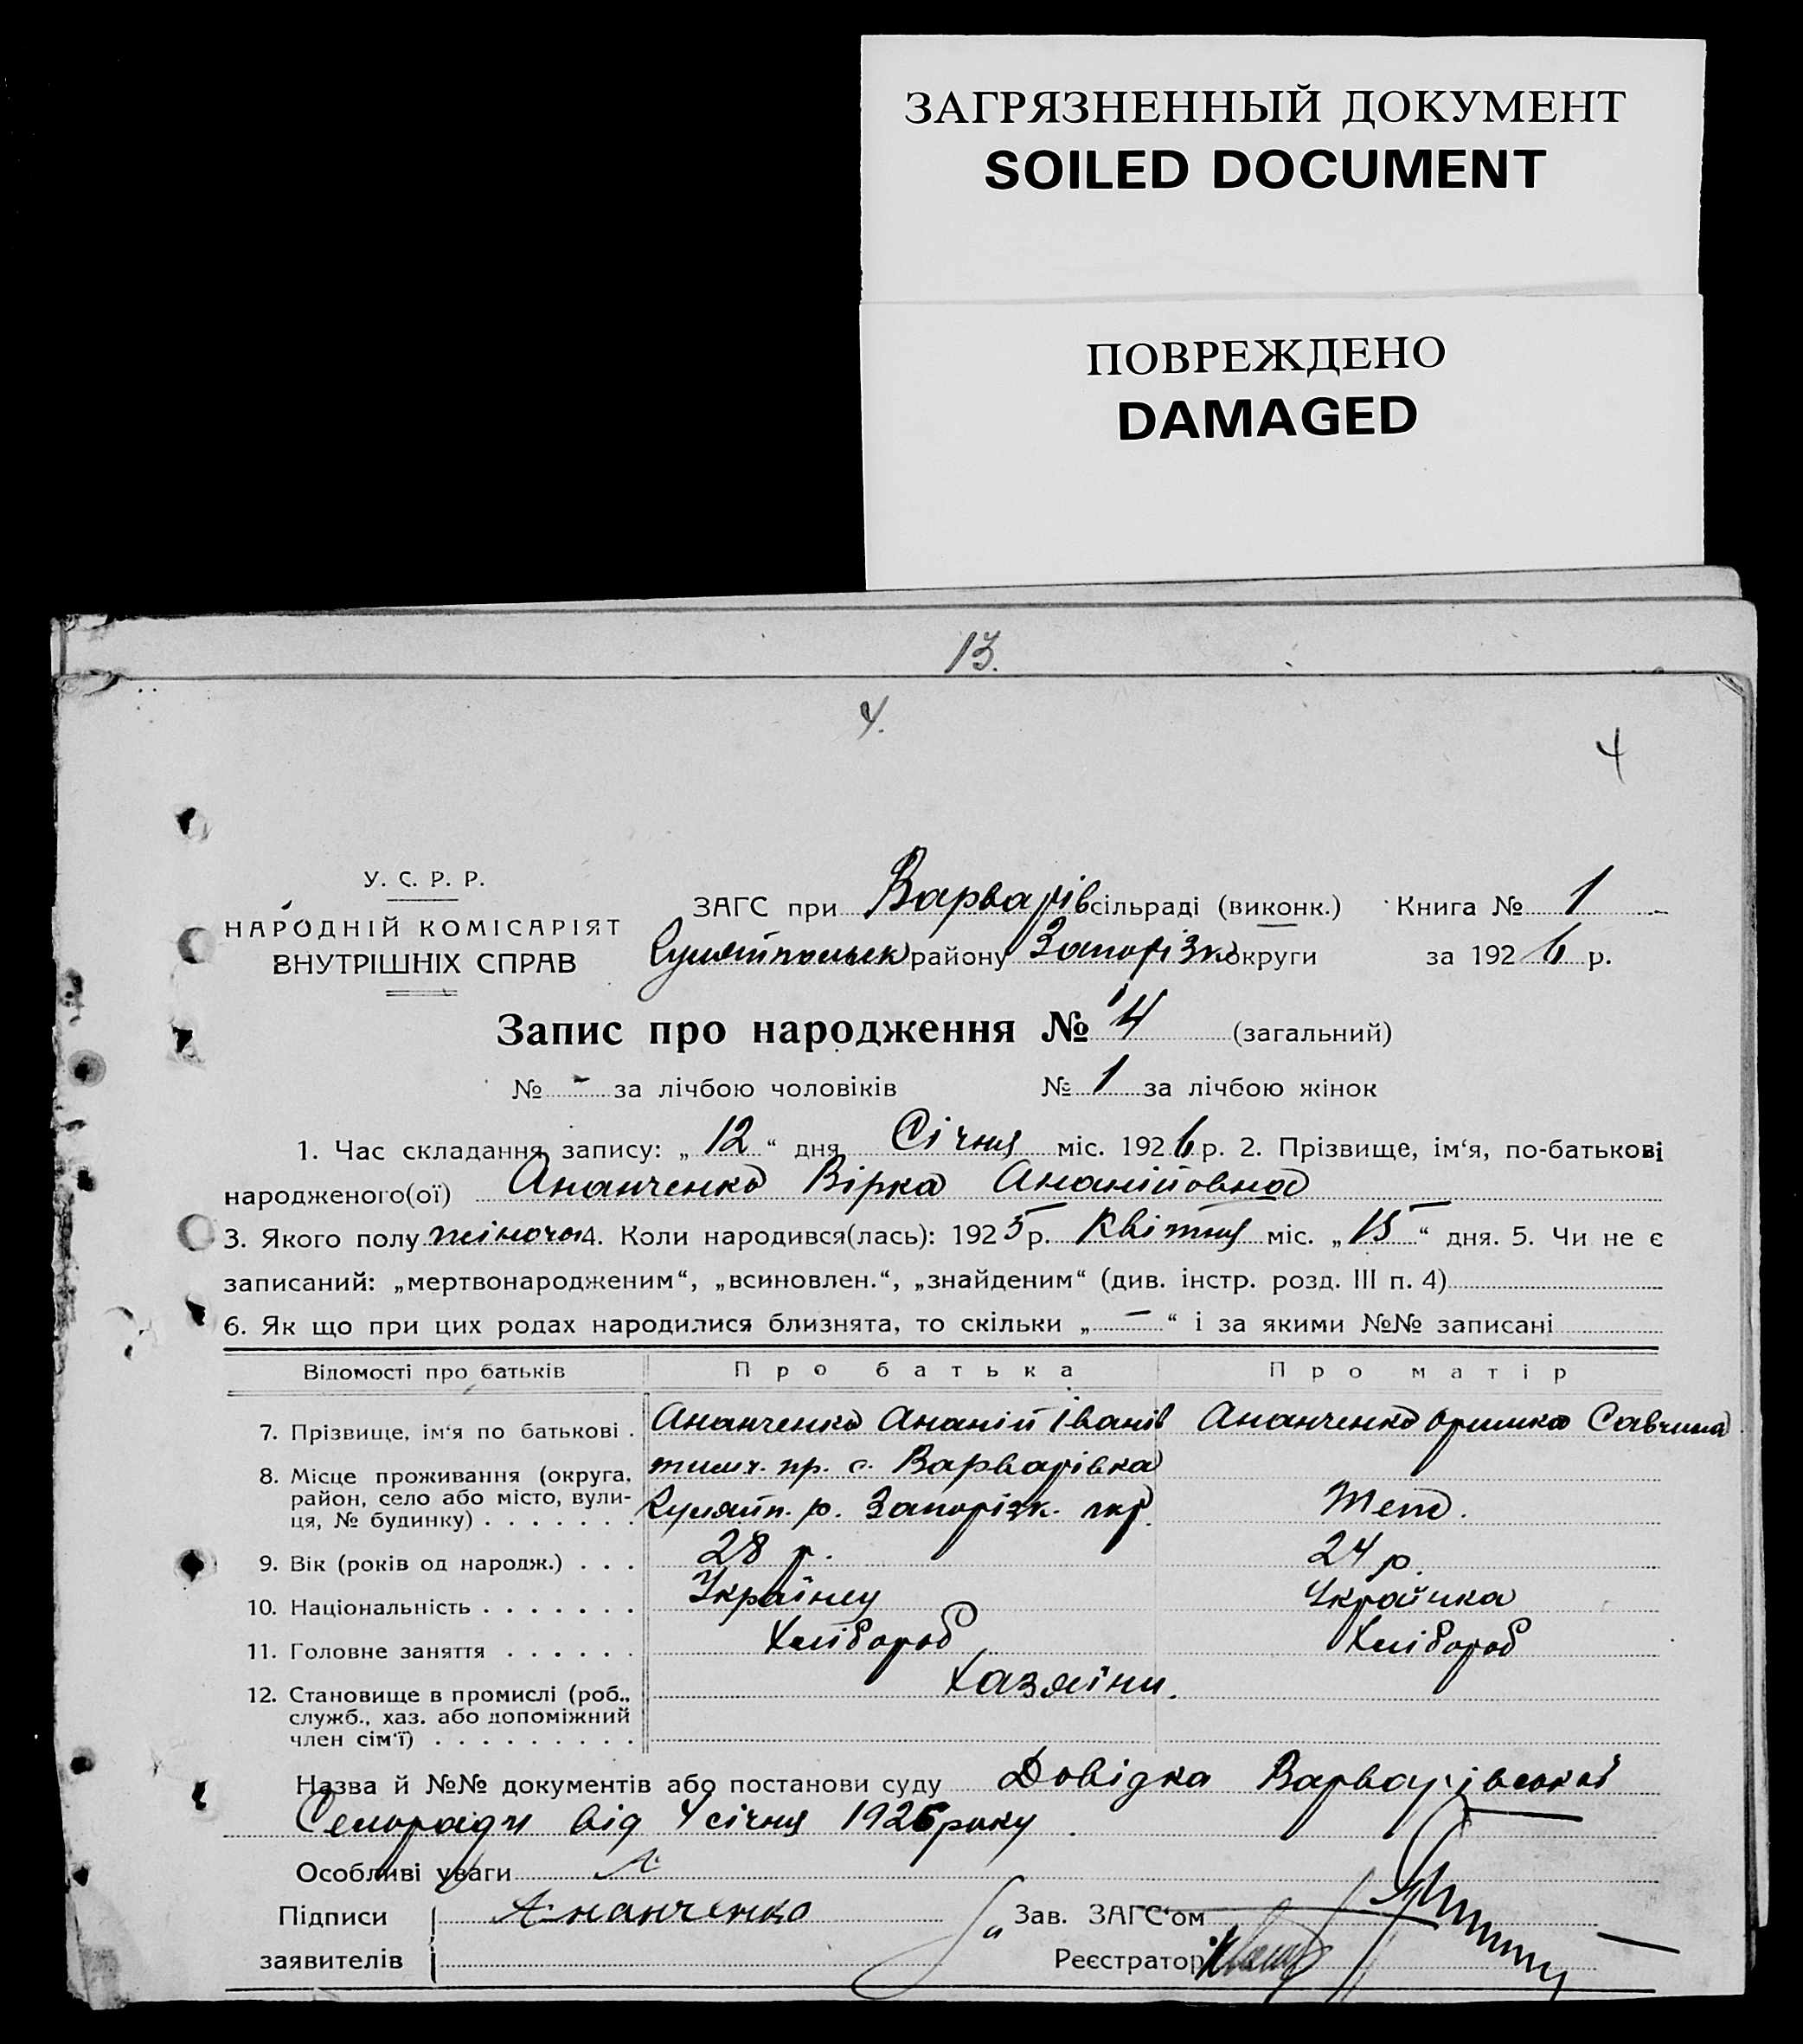 ЗАГРЯЗНЕННЫЙ ДОКУМЕНТ
SOILED DOCUMENT
ПОВРЕЖДЕНО
DAMAGED
13.
4.
4
У. С. Р. Р.
НАРОДНІЙ КОМІСАРІЯТ
ВНУТРІШНІХ СПРАВ
ЗАГС при Варварів сільраді (виконк.) Книга № 1
Гуляйпольськ району Запорізк округи за 1926 р.
Запис про народження № 4 (загальний)
№ - за лічбою чоловіків № 1 за лічбою жінок
1. Час складання запису: „ 12 “ дня Січня міс. 1926 р. 2. Прізвище, ім‘я, по-батькові
народженого(ої) Ананченко Вірка Ананійовна
3. Якого полу жіночої 4. Коли народився(лась): 1925 р. Квітня міс. „ 15 “ дня. 5. Чи не є
записаний: „мертвонародженим“, „всиновлен.“, „знайденим“ (див. інстр. розд. III п. 4)
6. Як що при цих родах народилися близнята, то скільки „ — “ і за якими №№ записані
Відомості про батьків Про батька Про матір
7. Прізвище, ім‘я по батькові . Ананченко Ананій Іванів Ананченко Оришка Савчина
8. Місце проживання (округа, тимч. пр. с. Варварівка
район, село або місто, вули- Гуляйп. р. Запорізк. окр. Теж.
ця, № будинку)
9. Вік (років од народж.) . . . 28 р. 24 р.
10. Національність Українец Українка
11. Головне заняття Хлібороб Хлібороб
12. Становище в промислі (роб., Хазяїни.
служб., хаз. або допоміжний
член сім‘ї)
Назва й №№ документів або постанови суду Довідка Варварівської
Сельради від 4 січня 1926 року.
Особливі уваги
Підписи Ананченко Зав. ЗАГС‘ом
заявителів Реєстратор